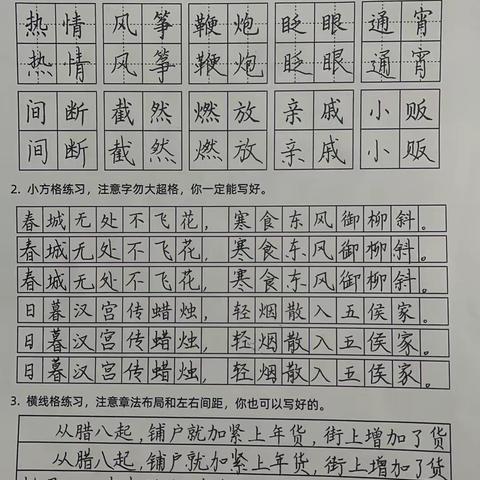 热情 风筝 鞭炮 眨眼 通宵
热情 风筝 鞭炮 眨眼 通宵
间断 截然 燃放 亲戚 小贩
间断 截然 燃放 亲戚 小贩
2. 小方格练习，注意字勿大超格，你一定能写好。
春城无处不飞花，寒食东风御柳斜。
春城无处不飞花，寒食东风御柳斜。
春城无处不飞花，寒食东风御柳斜。
日暮汉宫传蜡烛，轻烟散入五侯家。
日暮汉宫传蜡烛，轻烟散入五侯家。
日暮汉宫传蜡烛，轻烟散入五侯家。
3. 横线格练习，注意章法布局和左右间距，你也可以写好的。
从腊八起，铺户就加紧上年货，街上增加了货
从腊八起，铺户就加紧上年货，街上增加了货